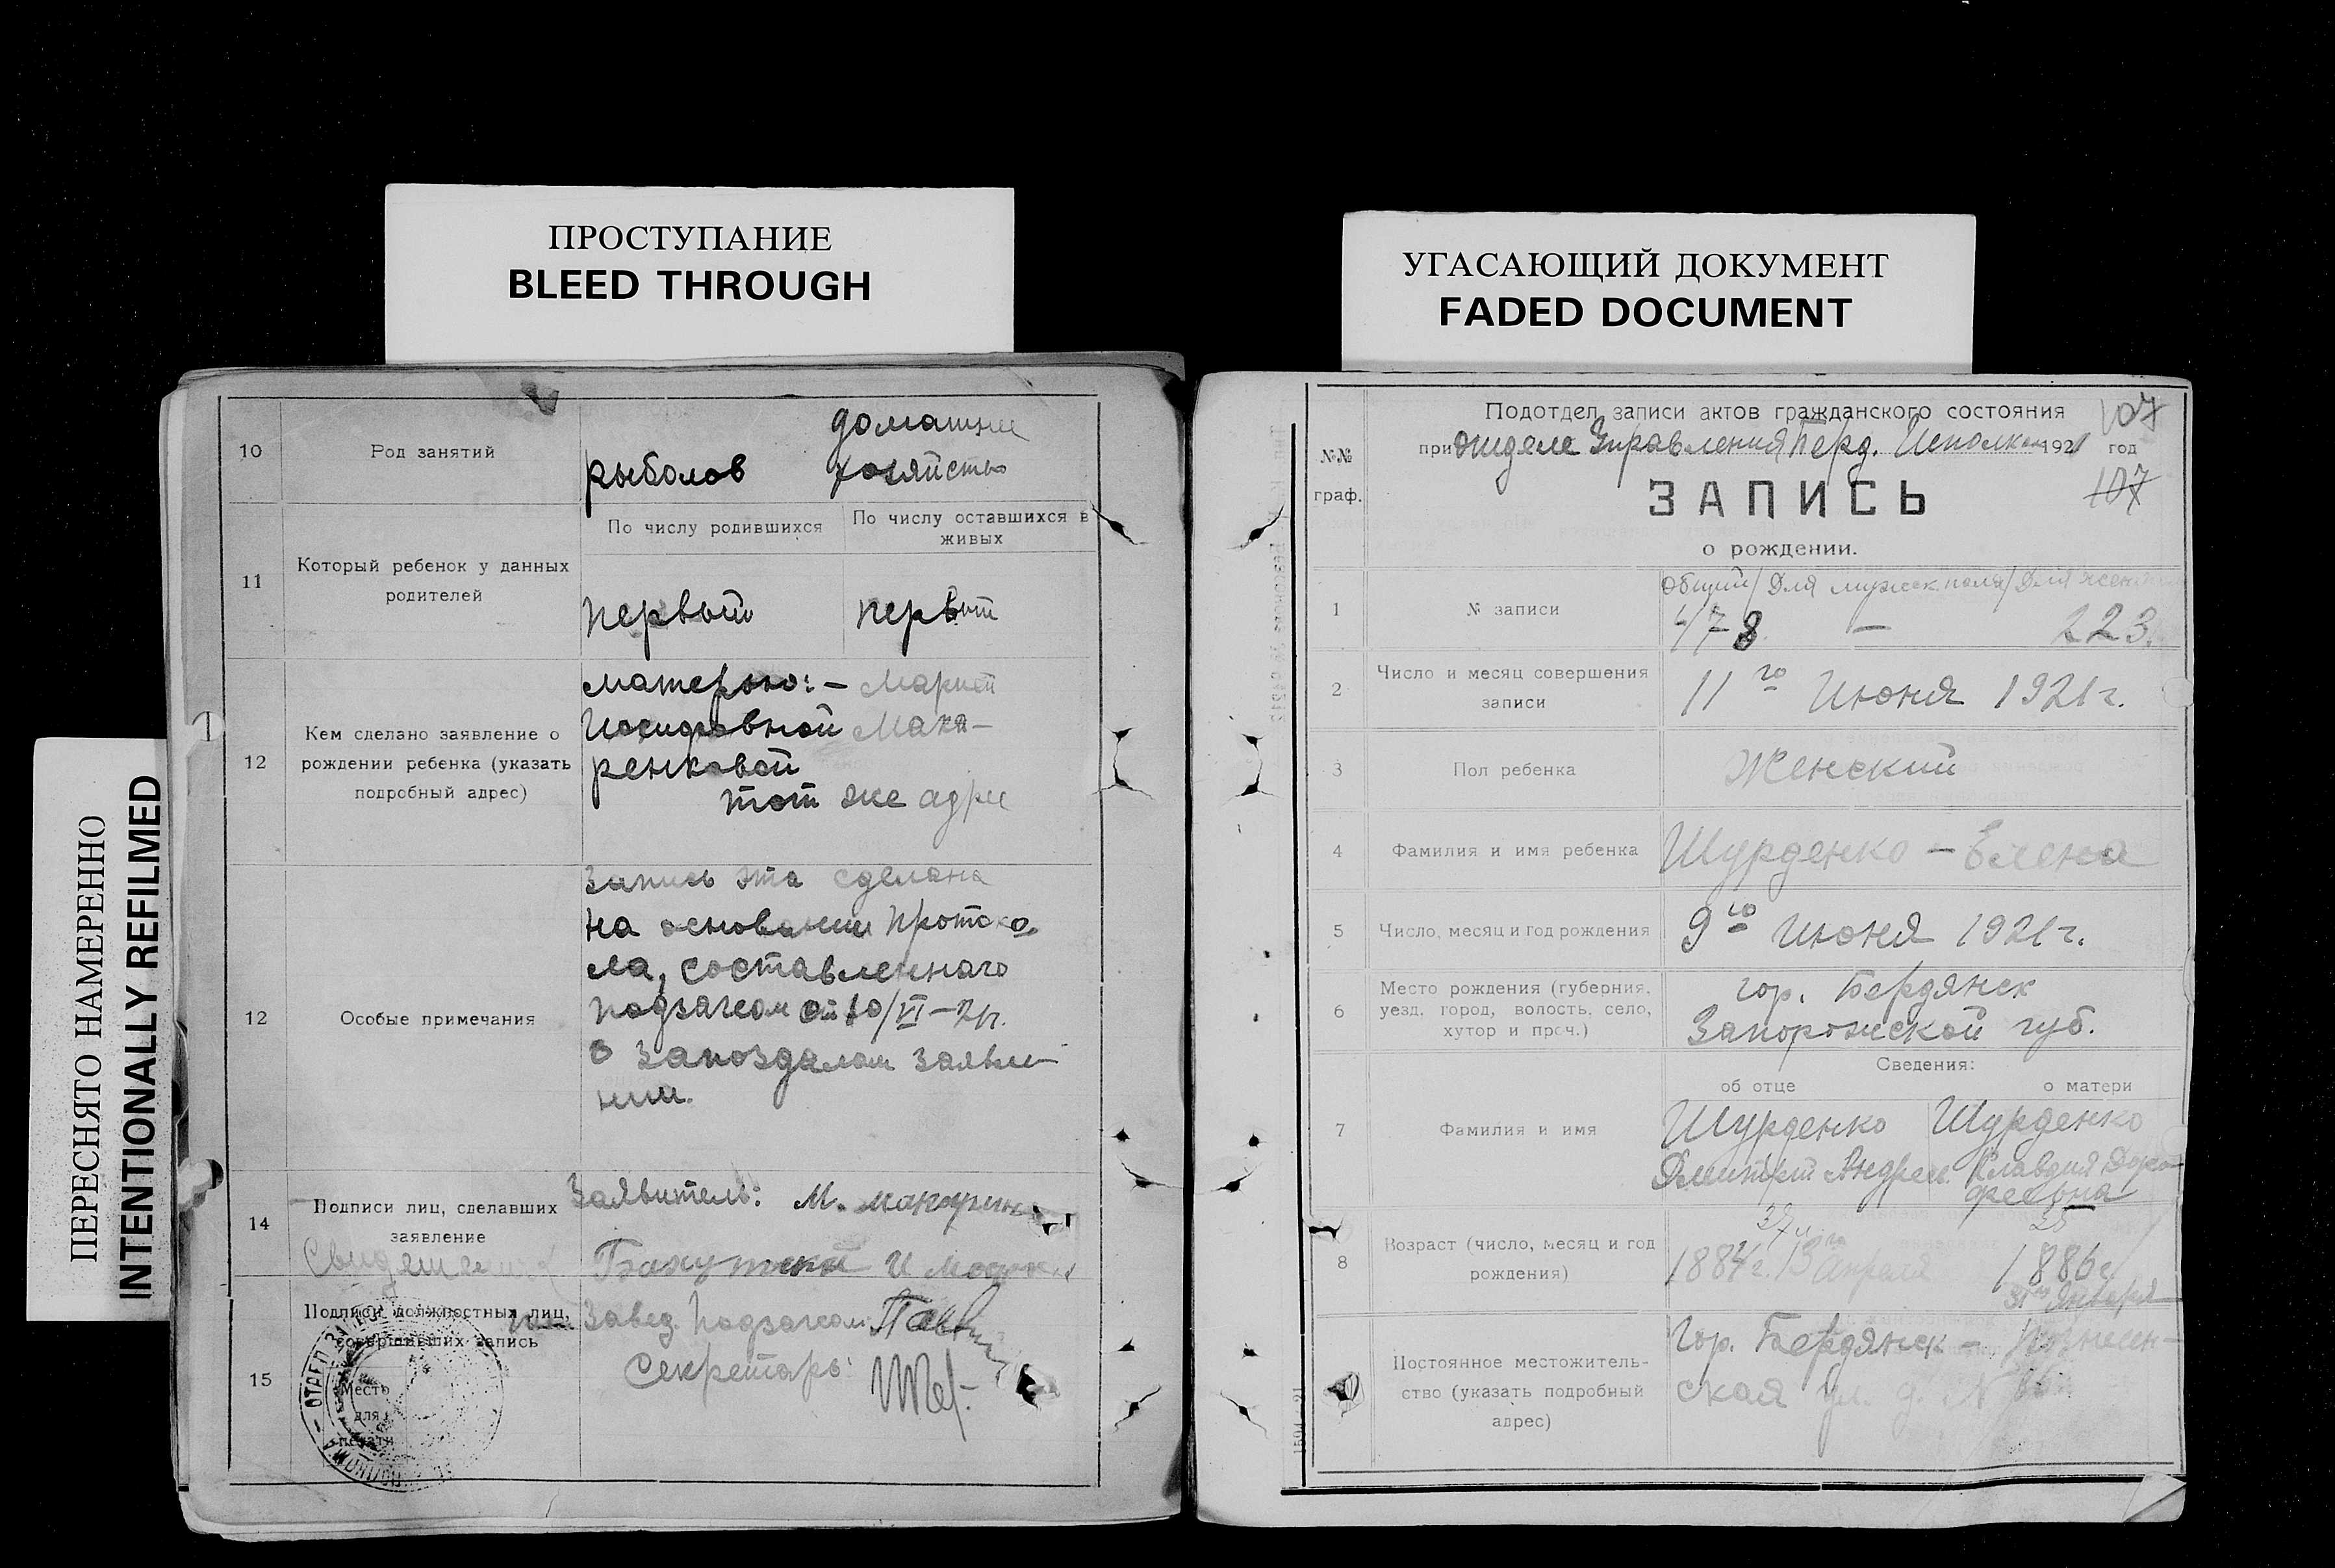 ПРОСТУПАНИЕ
BLEED THROUGH
ПЕРЕСНЯТО НАМЕРЕННО
INTENTIONALLY REFILMED
10
Род занятий
рыболов
домашнее
хозяйство
11
Который ребенок у данных
родителей
По числу родившихся
По числу оставшихся в
живых
первый
первый
12
Кем сделано заявление о
рождении ребенка (указать
подробный адрес)
матерью: – Марией
Мака–
ренковой
тот же адрес
12
Особые примечания
Запись эта сделана
на основании протоко
ла, составленнаго
подзагсом от 10/VI–21г.
о запоздалом заявле
нии.
14
Подписи лиц, сделавших
заявление
Заявитель: М.
15
Подписи должностных лиц,
совершивших запись
Место
для
печати
Завед. подзагсом
Секретарь:
УГАСАЮЩИЙ ДОКУМЕНТ
FADED DOCUMENT
№№
граф.
Подотдел записи актов гражданского состояния
107
при отделе Управления Берд. Исполком 1921 год
107
ЗАПИСЬ
о рождении.
1
№ записи
Общий/Для мужск. пола/Для женск.
478 — 223.
2
Число и месяц совершения
записи
11го Июня 1921г.
3
Пол ребенка
Женский
4
Фамилия и имя ребенка
Шурденко – Елена
5
Число, месяц и год рождения
9го Июня 1921г.
6
Место рождения (губерния,
уезд, город, волость, село,
хутор и проч.)
гор. Бердянск
Запорожской губ.
Сведения:
об отце
о матери
7
Фамилия и имя
Шурденко
Дмитрий Андреев.
Шурденко
Клавдия Доро
феевна
8
Возраст (число, месяц и год
рождения)
37
1884г. 13го Апреля
35
1886г
31го Января
Постоянное местожитель-
ство (указать подробный
адрес)
Гор. Бердянск – Вознесен–
ская ул. д. №